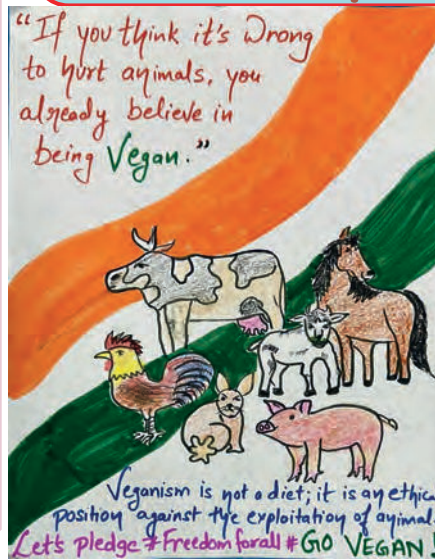 "If you think it's Wrong
to hurt animals, you
already believe in
being Vegan."
Veganism is not a diet; it is an ethica
position against the exploitation of animal.
Let's pledge #Freedomforall #GO VEGAN!